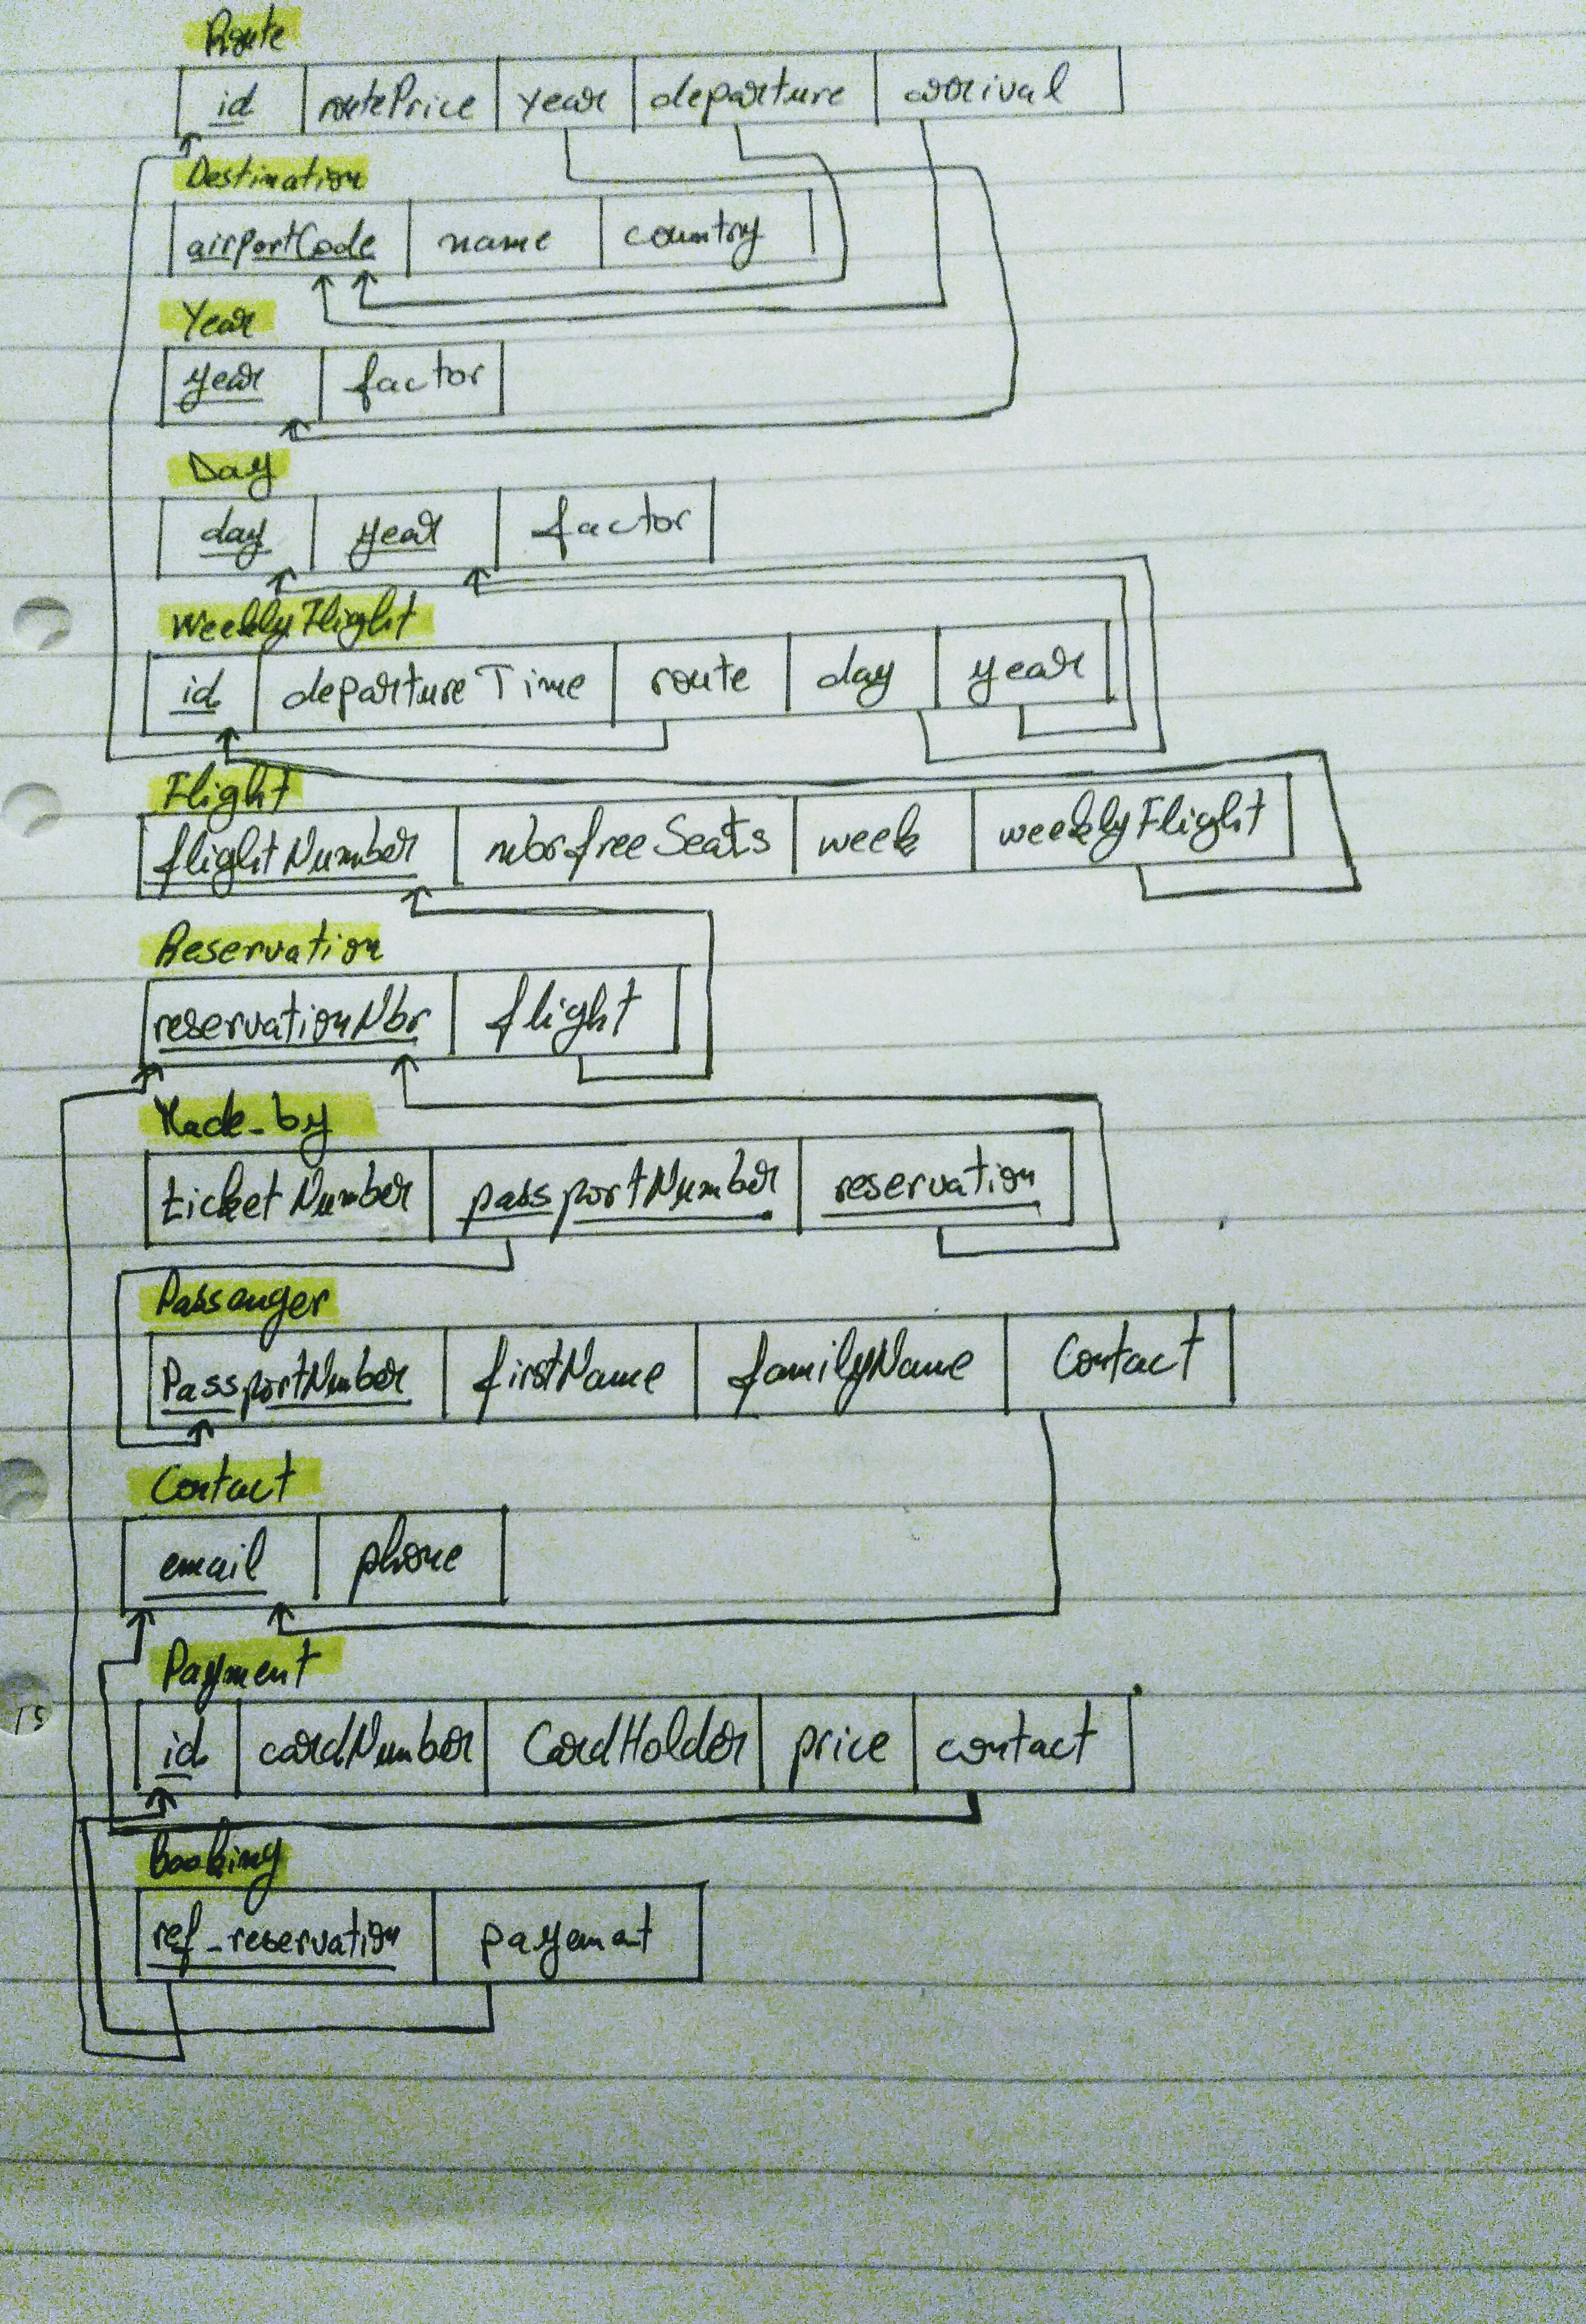 Route
id routePrice year departure arrival
Destination
airportCode name country
Year
year factor
Day
day year factor
WeeklyFlight
id departureTime route day year
Flight
flightNumber nbrfreeSeats week weeklyFlight
Reservation
reservationNbr flight
Made_by
ticketNumber passportNumber reservation
Passenger
PassportNumber firstName familyName Contact
Contact
email phone
Payment
id cardNumber CardHolder price contact
Booking
ref_reservation